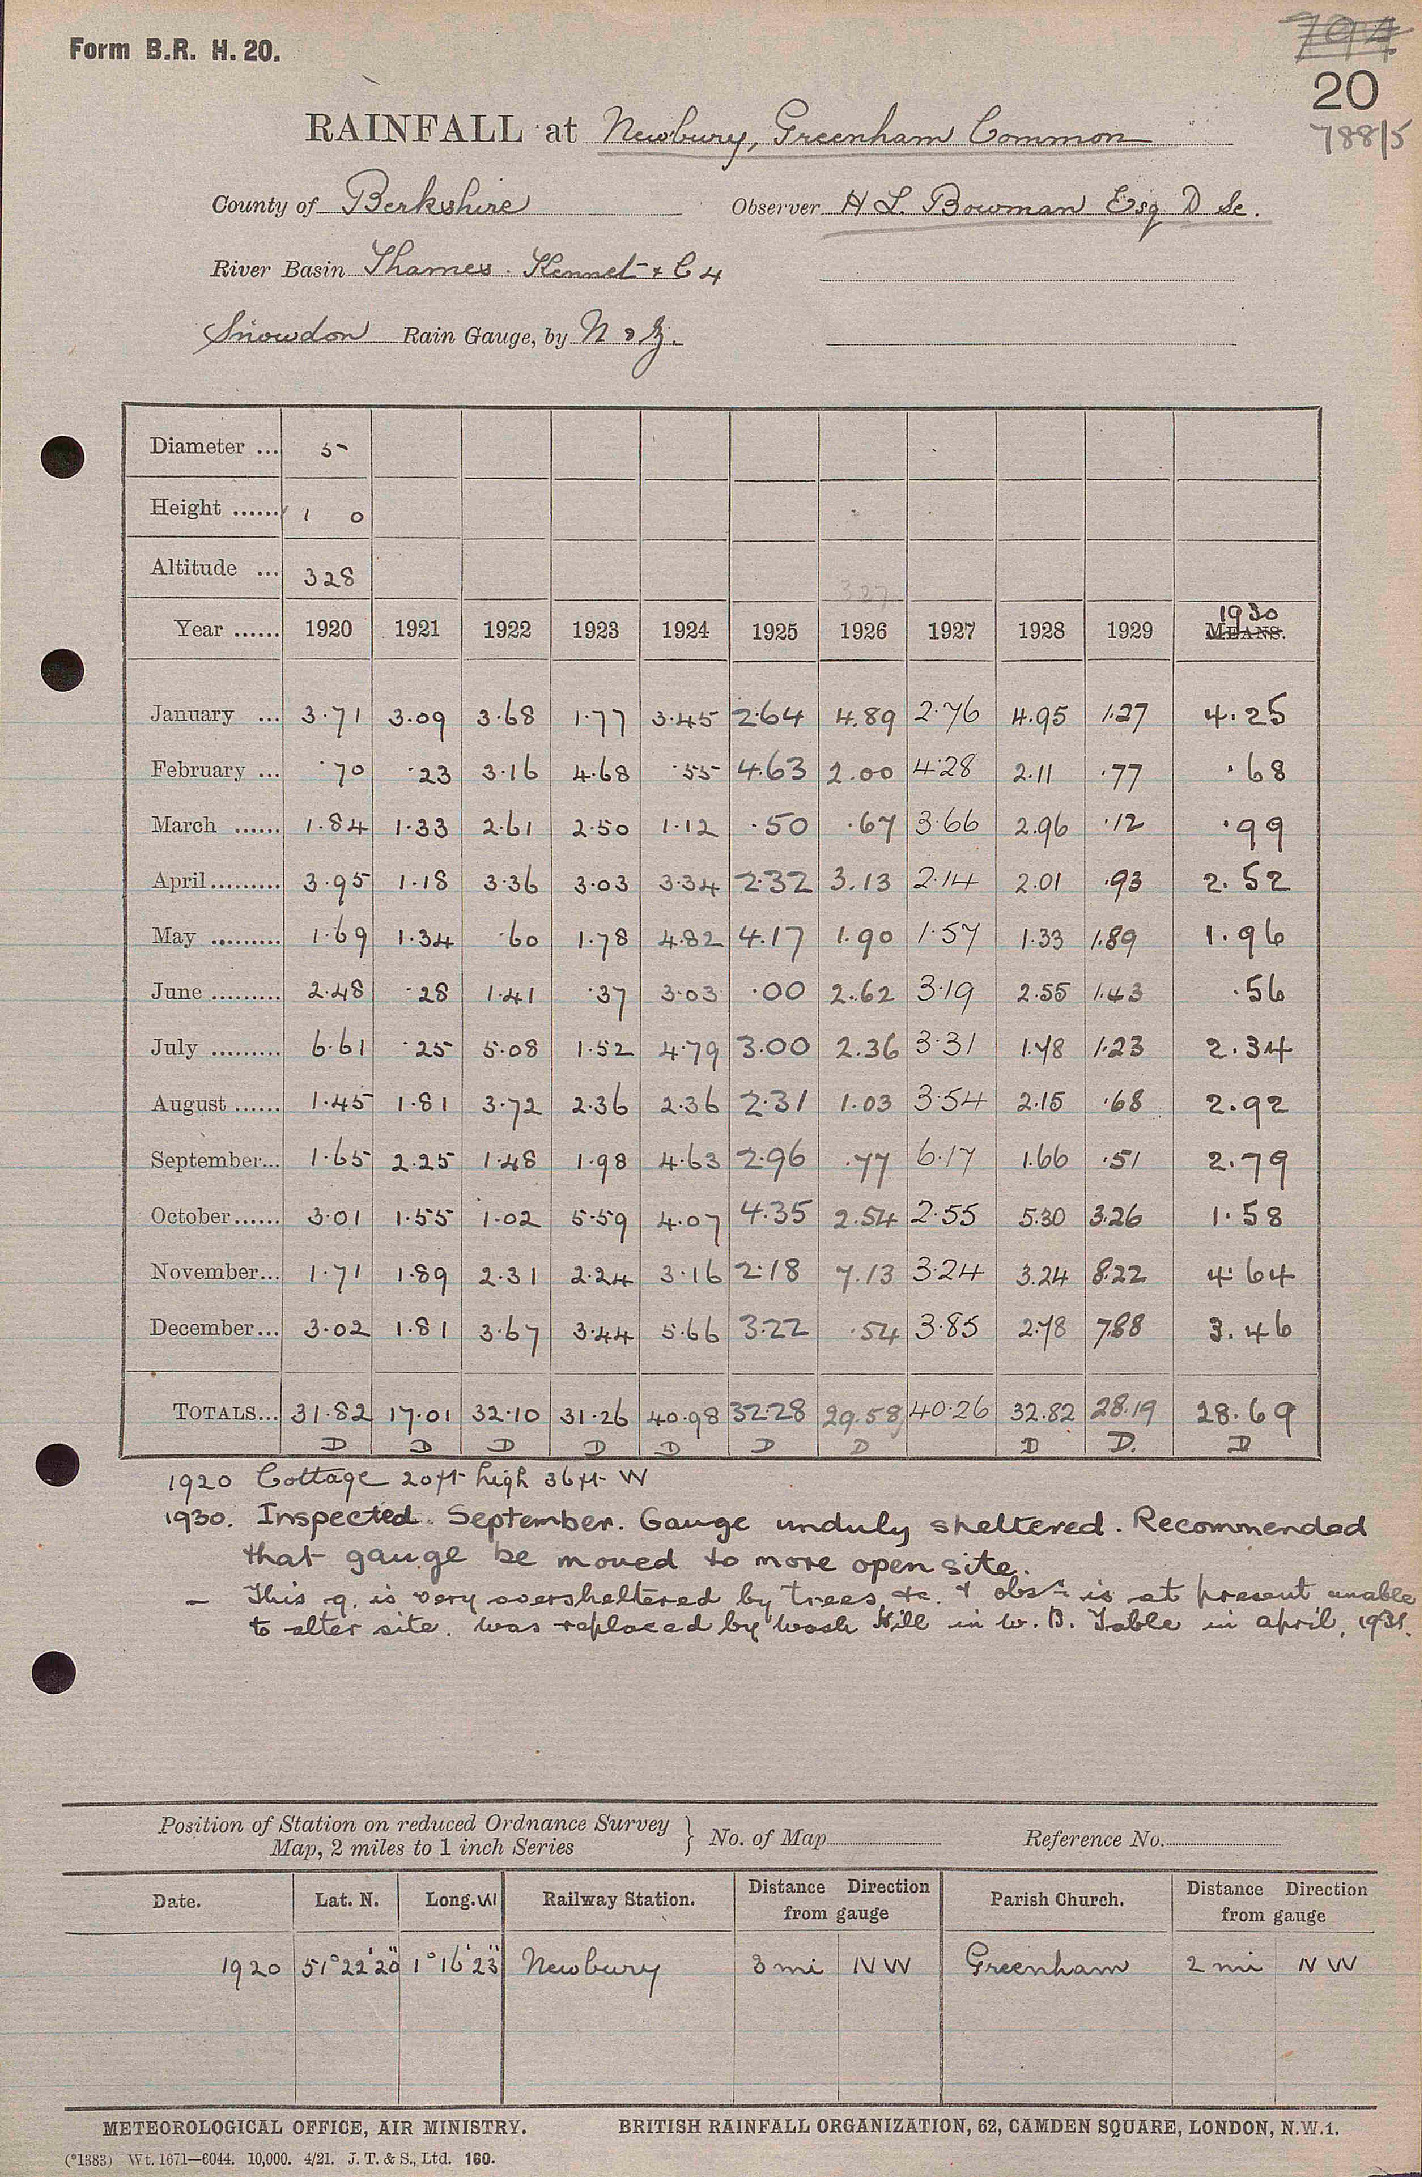 Form B.R. H. 20.
794
20
788/5
RAINFALL at Newbury, Greenham Common
County of Berkshire Observer H L. Bowman Esq D Sc.
River Basin Thames. Kennet & C 4
Snowdon Rain Gauge, by N & Z.
Diameter ... 5
Height ...... 1 0
Altitude ... 328 327
Year ...... 1920 1921 1922 1923 1924 1925 1926 1927 1928 1929 1930 MEANS.
January ... 3.71 3.09 3.68 1.77 3.45 2.64 4.89 2.76 4.95 1.27 4.25
February ... .70 .23 3.16 4.68 .55 4.63 2.00 4.28 2.11 .77 .68
March ...... 1.84 1.33 2.61 2.50 1.12 .50 .67 3.66 2.96 .12 .99
April......... 3.95 1.18 3.36 3.03 3.34 2.32 3.13 2.14 2.01 .93 2.52
May ......... 1.69 1.34 .60 1.78 4.82 4.17 1.90 1.57 1.33 1.89 1.96
June ......... 2.48 .28 1.41 .37 3.03 .00 2.62 3.19 2.55 1.43 .56
July ......... 6.61 .25 5.08 1.52 4.79 3.00 2.36 3.31 1.78 1.23 2.34
August ...... 1.45 1.81 3.72 2.36 2.36 2.31 1.03 3.54 2.15 .68 2.92
September... 1.65 2.25 1.48 1.98 4.63 2.96 .77 6.17 1.66 .51 2.79
October...... 3.01 1.55 1.02 5.59 4.07 4.35 2.54 2.55 5.30 3.26 1.58
November... 1.71 1.89 2.31 2.24 3.16 2.18 7.13 3.24 3.24 8.22 4.64
December... 3.02 1.81 3.67 3.44 5.66 3.22 .54 3.85 2.78 7.88 3.46
TOTALS... 31.82 17.01 32.10 31.26 40.98 32.28 29.58 40.26 32.82 28.19 28.69
D D D D D D D D D. D
1920 Cottage 20ft high 36ft W
1930. Inspected. September. Gauge unduly sheltered. Recommended
that gauge be moved to more open site.
– This g. is very oversheltered by trees, etc. & obsr is at present unable
to alter site. Was replaced by Wash Hill in W. B. Table in april, 1931.
Position of Station on reduced Ordnance Survey
Map, 2 miles to 1 inch Series } No. of Map Reference No.
Date. Lat. N. Long. W Railway Station. Distance Direction from gauge Parish Church. Distance Direction from gauge
1920 51°22'20" 1°16'23" Newbury 3 mi NW Greenham 2 mi NW
METEOROLOGICAL OFFICE, AIR MINISTRY. BRITISH RAINFALL ORGANIZATION, 62, CAMDEN SQUARE, LONDON, N.W.1.
(*1383) Wt. 1671—6044. 10,000. 4/21. J. T. & S., Ltd. 160.